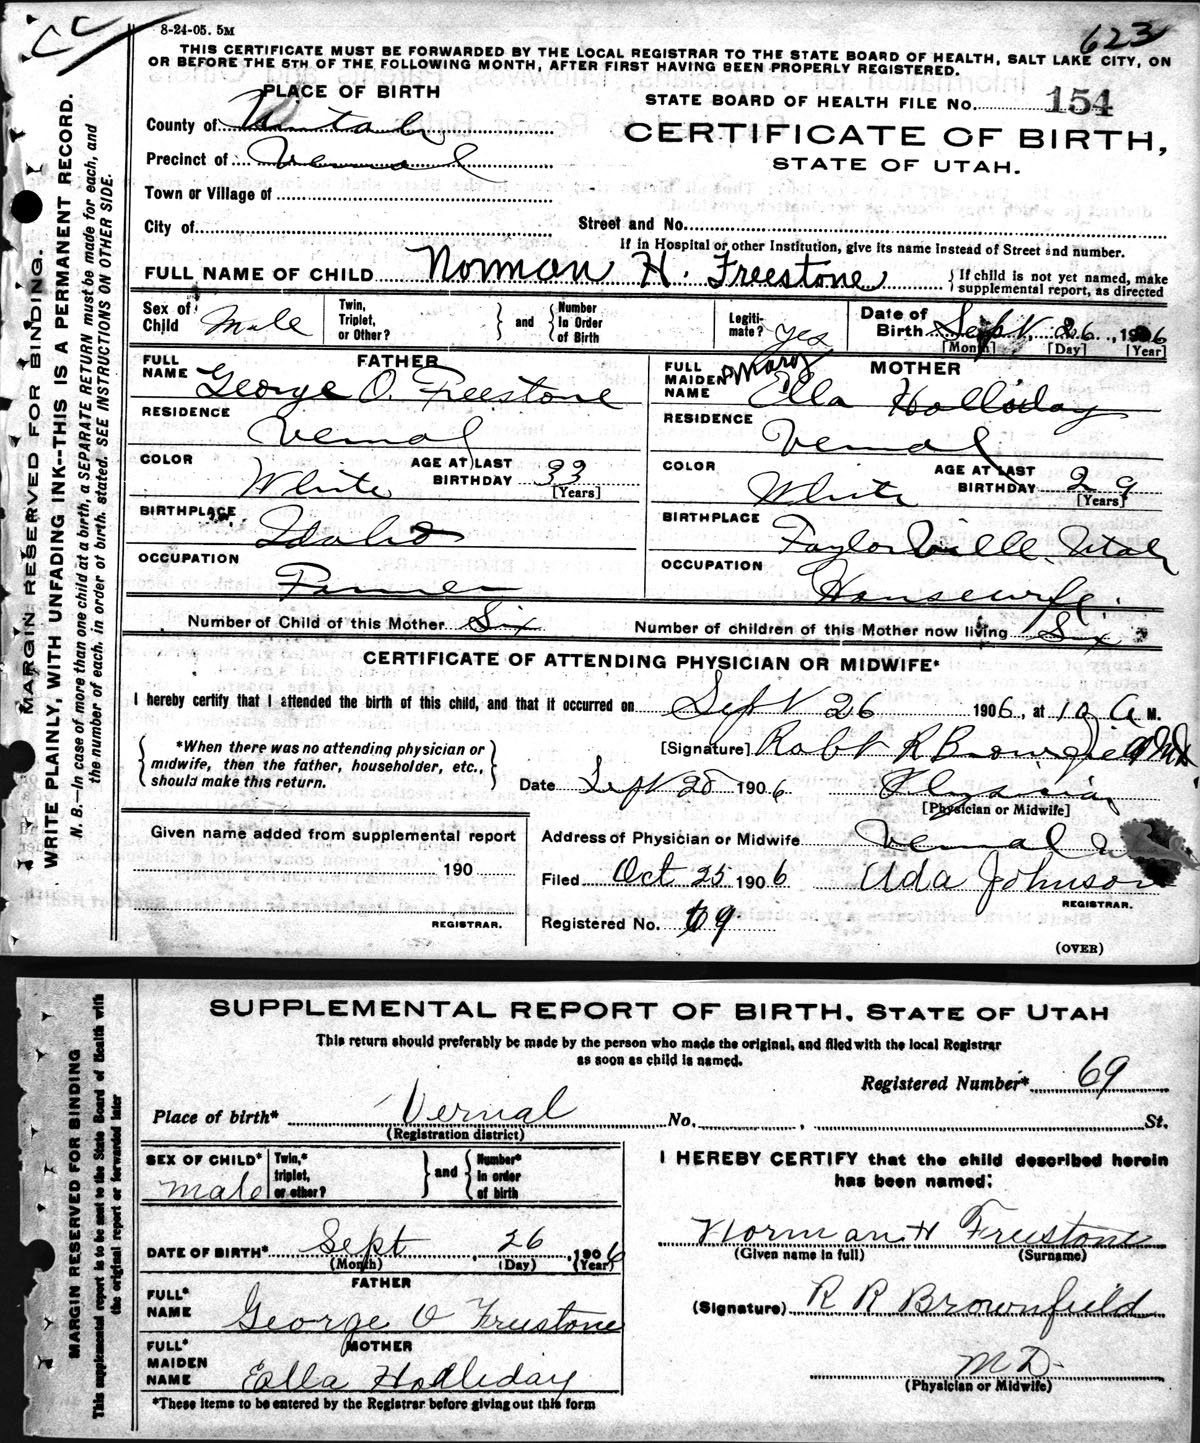 CC
8-24-05. 5M
623
THIS CERTIFICATE MUST BE FORWARDED BY THE LOCAL REGISTRAR TO THE STATE BOARD OF HEALTH, SALT LAKE CITY, ON
OR BEFORE THE 5TH OF THE FOLLOWING MONTH, AFTER FIRST HAVING BEEN PROPERLY REGISTERED.
PLACE OF BIRTH
STATE BOARD OF HEALTH FILE No. 154
County of Uintah
CERTIFICATE OF BIRTH,
Precinct of Vernal
STATE OF UTAH.
Town or Village of
City of
Street and No.
If in Hospital or other Institution, give its name instead of Street and number.
FULL NAME OF CHILD Norman H. Freestone
{If child is not yet named, make
supplemental report, as directed
Sex of Child Male
Twin, Triplet, or Other?
} and {
Number In Order of Birth
Legitimate? yes
Date of Birth Sept. 26, 1906
[Month] [Day] [Year]
FATHER
FULL NAME George O. Freestone
RESIDENCE
Vernal
COLOR White
AGE AT LAST BIRTHDAY 33
[Years]
BIRTHPLACE
Idaho
OCCUPATION
Farmer
MOTHER
FULL MAIDEN NAME Mary Ella Holliday
RESIDENCE
Vernal
COLOR White
AGE AT LAST BIRTHDAY 29
[Years]
BIRTHPLACE
Taylorville Utah
OCCUPATION
Housewife
Number of Child of this Mother Six
Number of children of this Mother now living Six
CERTIFICATE OF ATTENDING PHYSICIAN OR MIDWIFE*
I hereby certify that I attended the birth of this child, and that it occurred on Sept 26 1906, at 10 A M.
{*When there was no attending physician or
midwife, then the father, householder, etc.,
should make this return.}
[Signature] Robt R Brownfield MD
Date Sept 28 1906 Physician
[Physician or Midwife]
Given name added from supplemental report
190
REGISTRAR.
Address of Physician or Midwife Vernal
Filed Oct 25 1906 Ada Johnson
REGISTRAR.
Registered No. 69
(OVER)
MARGIN RESERVED FOR BINDING.
WRITE PLAINLY, WITH UNFADING INK--THIS IS A PERMANENT RECORD.
N. B.—In case of more than one child at a birth, a SEPARATE RETURN must be made for each, and
the number of each, in order of birth, stated. SEE INSTRUCTIONS ON OTHER SIDE.
SUPPLEMENTAL REPORT OF BIRTH, STATE OF UTAH
This return should preferably be made by the person who made the original, and filed with the local Registrar
as soon as child is named.
Registered Number* 69
Place of birth* Vernal No. , St.
(Registration district)
SEX OF CHILD* Male
Twin,* triplet, or other?
} and {
Number* in order of birth
DATE OF BIRTH* Sept, 26, 1906
(Month) (Day) (Year)
FATHER
FULL* NAME George O Freestone
MOTHER
FULL* MAIDEN NAME Ella Holliday
*These items to be entered by the Registrar before giving out this form
I HEREBY CERTIFY that the child described herein
has been named:
Norman H Freestone
(Given name in full) (Surname)
(Signature) R R Brownfield
M D-
(Physician or Midwife)
MARGIN RESERVED FOR BINDING
This supplemental report is to be sent to the State Board of Health with
the original report or forwarded later